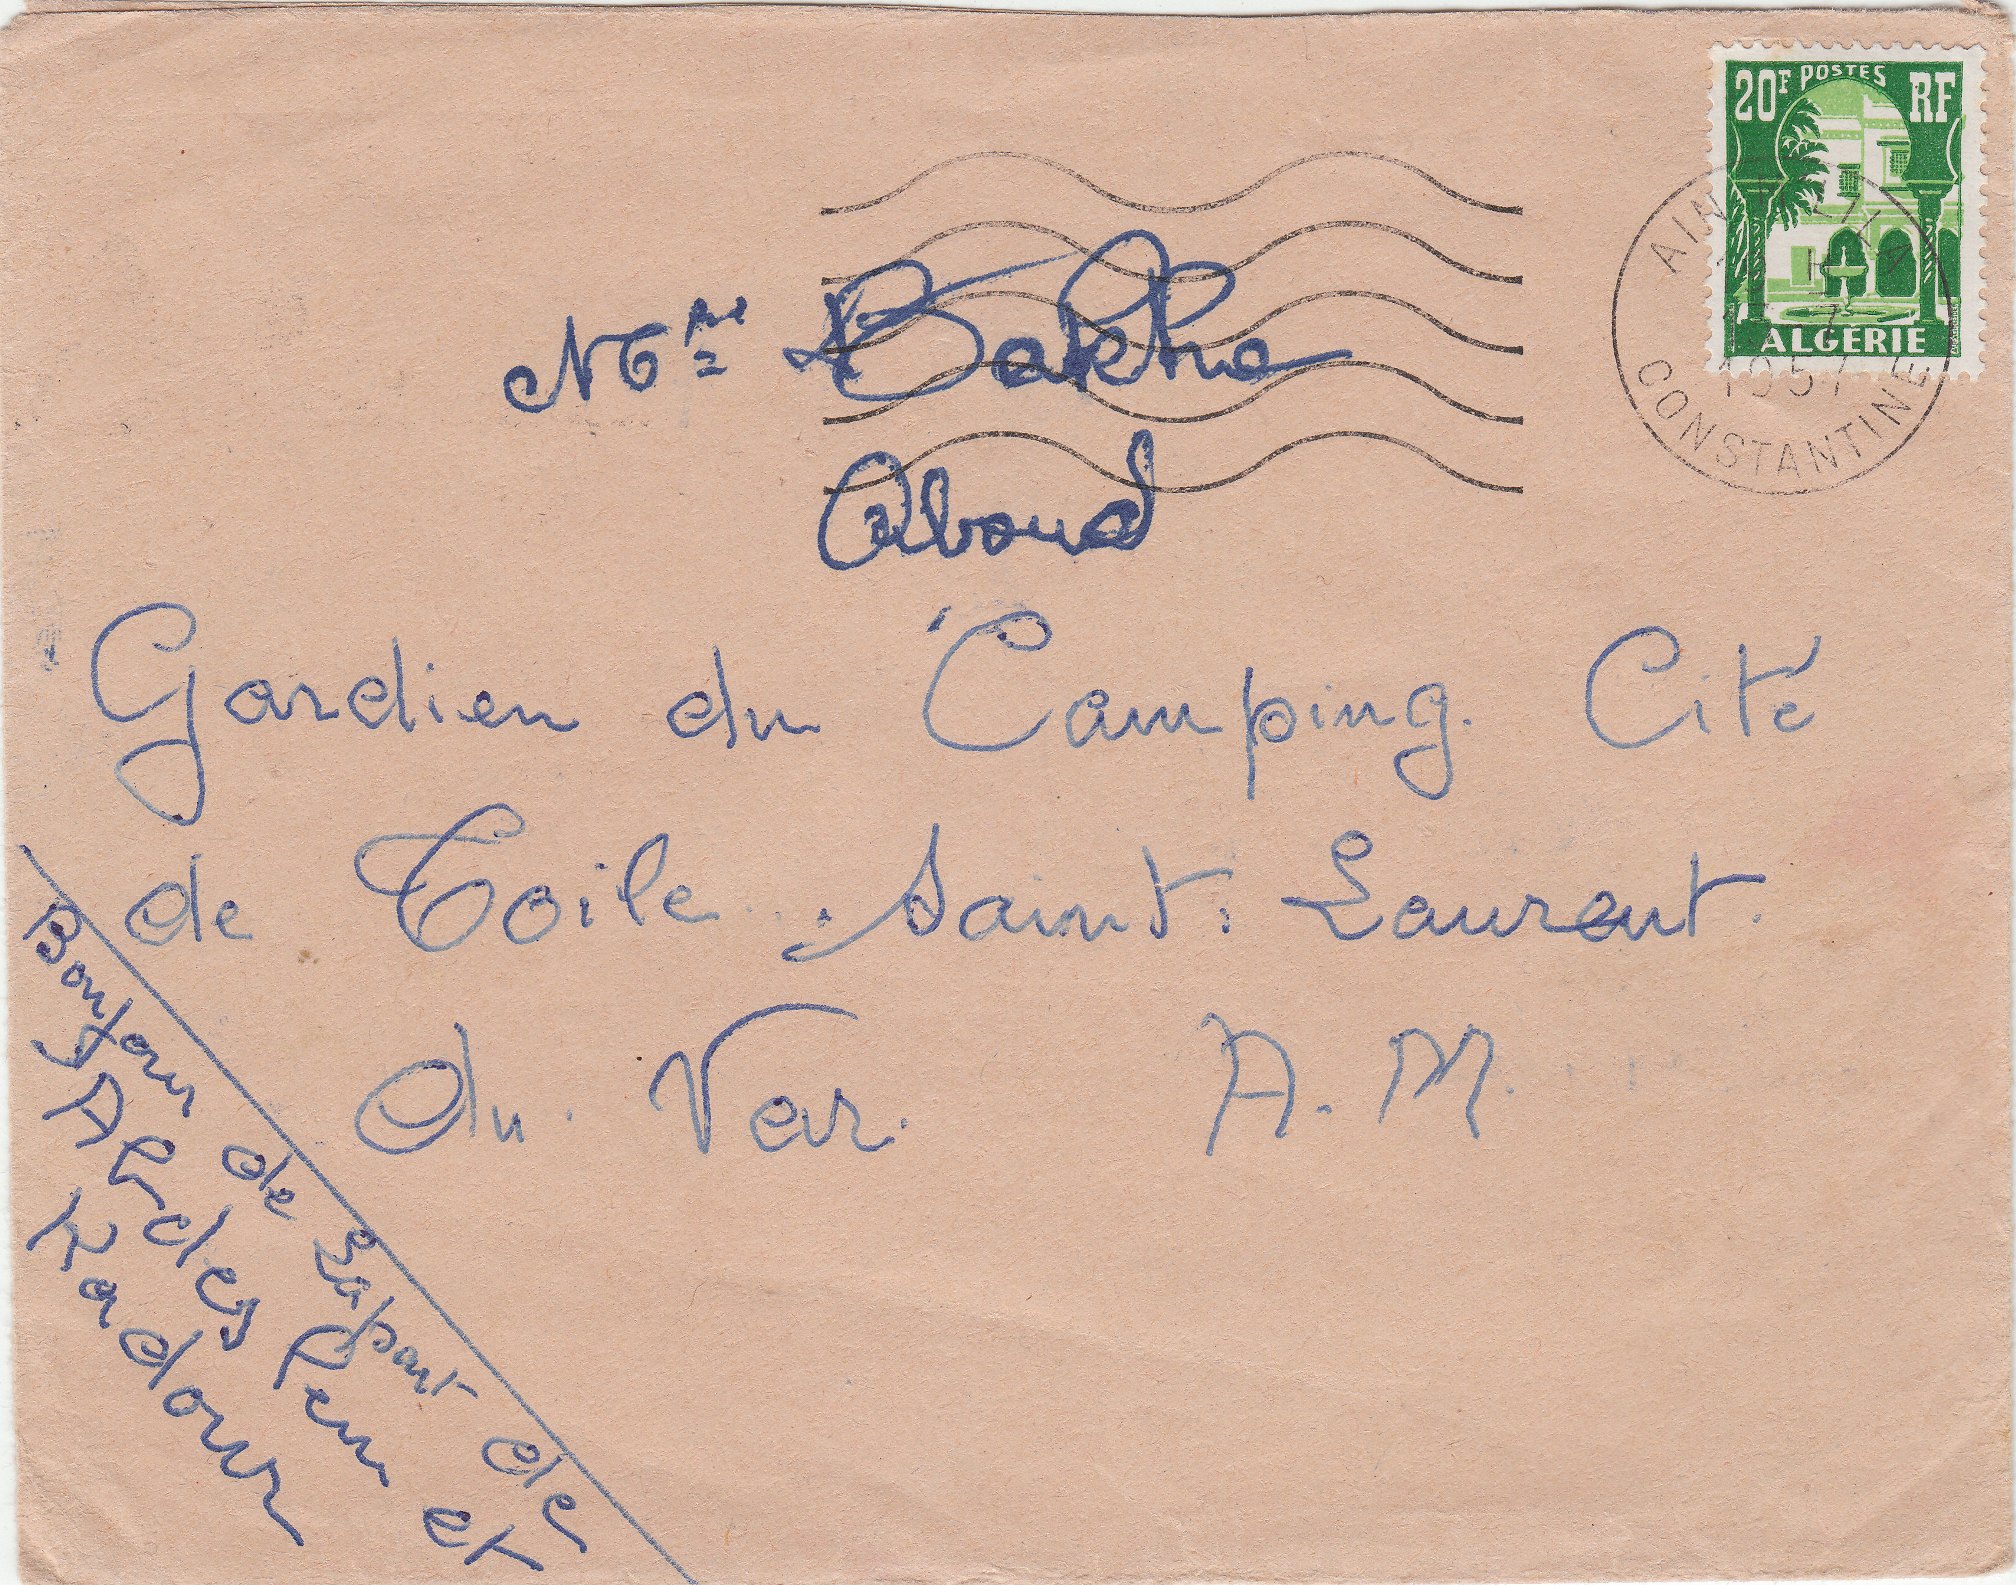 20F POSTES RF
ALGÉRIE
AIN
1957
CONSTANTINE
Bakha
Aboud
Gardien du Camping. Cité
de Toile Saint. Laurent.
du. Var. A. M.
Bonjour de Lapart de
Abdesslem et
Kadour